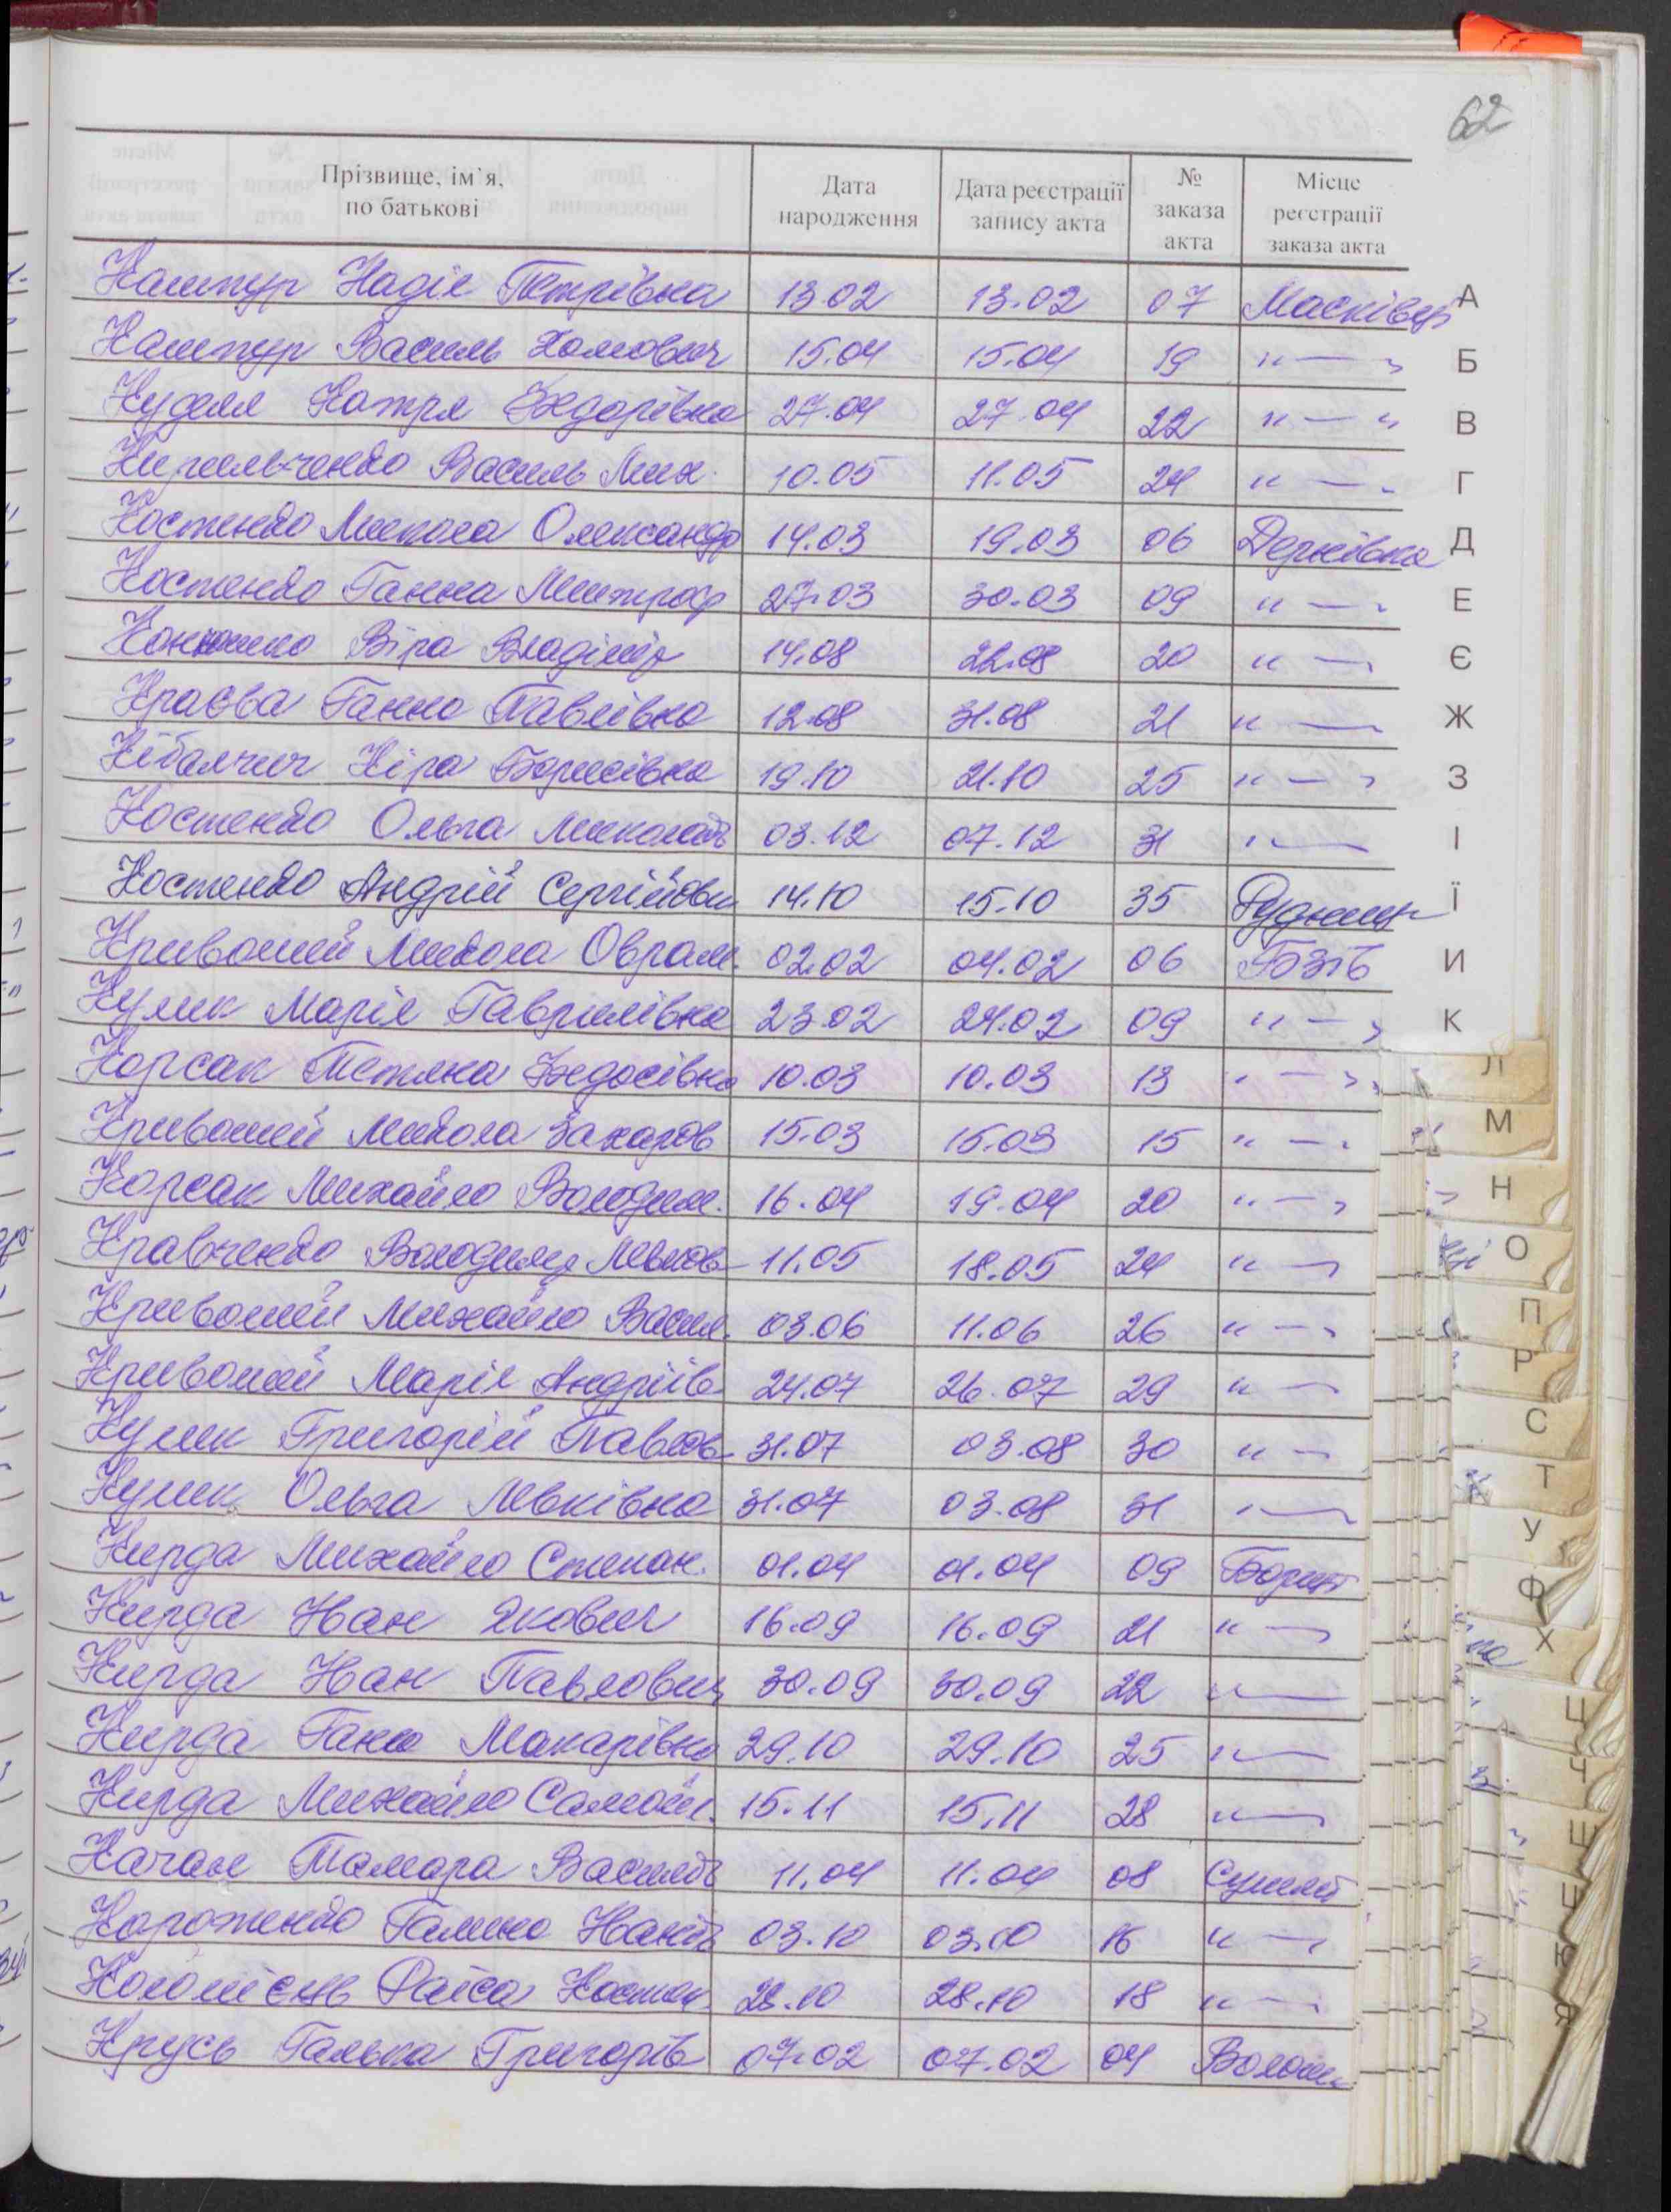 62
Прізвище, ім'я, по батькові | Дата народження | Дата реєстрації запису акта | № заказа акта | Місце реєстрації заказа акта
Каштур Надія Петрівна 13.02 13.02 07 Масківці
Каштур Василь Хомович 15.04 15.04 19 " — "
Куделя Катря Федорівна 27.04 27.04 22 " — "
Кирильченко Василь Мих. 10.05 11.05 24 " — "
Костенко Микола Олександр 14.03 19.03 06 Держівка
Костенко Ганна Митроф 27.03 30.03 09 " — "
Віра Владімір 14.08 22.08 20 " — "
Краєва Ганна Павлівна 12.08 31.08 21 " — "
Кібальчич Кіра Борисівна 19.10 21.10 25 " — "
Костенко Ольга Миколаїв 03.12 07.12 31 " — "
Костенко Андрій Сергійови 14.10 15.10 35 Рудниц
Кривошей Микола Оврам. 02.02 04.02 06
Кулик Марія Гаврилівна 23.02 24.02 09 " — "
Корсак Тетяна Федосівна 10.03 10.03 13 " — "
Кривошей Микола Захаров 15.03 15.03 15 " — "
Корсак Михайло Володим. 16.04 19.04 20 " — "
Кравченко Володимир Левков 11.05 18.05 24 " — "
Кривошей Михайло Васил. 03.06 11.06 26 " — "
Кривошей Марія Андріїв 24.07 26.07 29 " — "
Кулик Григорій Павлов 31.07 03.08 30 " — "
Кулик Ольга Левківна 31.07 03.08 31 " — "
Кирда Михайло Степан. 01.04 01.04 09
Кирда Іван Якович 16.09 16.09 21 " — "
Кирда Іван Павлович 30.09 30.09 22 " — "
Кирда Ганна Макарівна 29.10 29.10 25 " — "
Кирда Михайло Самойл. 15.11 15.11 28 " — "
Качан Тамара Василів 11.04 11.04 08
Галина Іванів 03.10 03.10 16 " — "
Коломієць Раїса Костян 28.10 28.10 18 " — "
Крусь Галька Григорів 07.02 07.02 04
А
Б
В
Г
Д
Е
Є
Ж
З
І
Ї
И
К
Л
М
Н
О
П
Р
С
Т
У
Ф
Х
Ц
Ч
Ш
Щ
Ю
Я